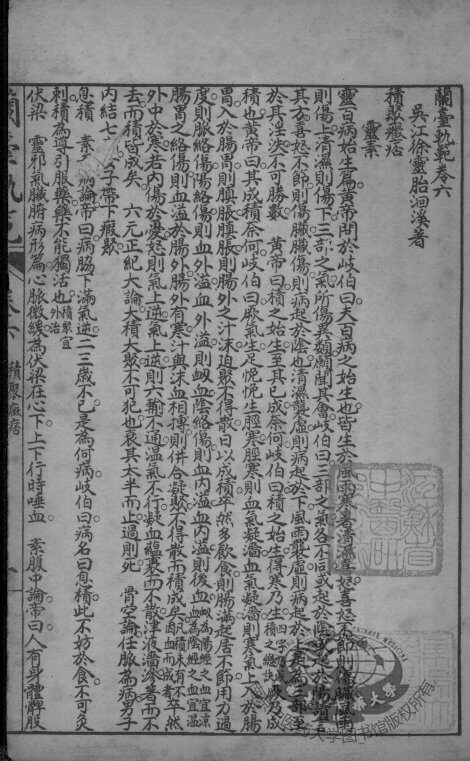 蘭臺軌範卷六
吳江徐靈胎洄溪著
積聚癥痞
靈素
靈百病始生篇黃帝問於岐伯曰夫百病之始生也皆生於風雨寒暑清濕喜怒喜怒不節則傷臟風雨
則傷上清濕則傷下三部之氣所傷異類願聞其會岐伯曰三部之氣各不同或起於陰或起於陽請言
其方喜怒不節則傷臟臟傷則病起於陰也清濕襲虛則病起於下風雨襲虛則病起於上是為三部至
於其淫泆不可勝數 黃帝曰積之始生至其已成奈何岐伯曰積之始生得寒乃生厥乃成
積也黃帝曰其成積奈何岐伯曰厥氣生足悗悗生脛寒脛寒則血氣凝濇血氣凝濇則寒氣上入於腸
胃入於腸胃則䐜脹䐜脹則腸外之汁沫迫聚不得散日以成積卒然多飲食則腸滿起居不節用力過
度則脈絡傷陽絡傷則血外溢血外溢則衄血陰絡傷則血內溢血內溢則後血
腸胃之絡傷則血溢於腸外腸外有寒汁沫與血相搏則併合凝聚不得散而積成矣卒然
外中於寒若內傷於憂怒則氣上逆氣上逆則六輸不通溫氣不行凝血蘊裹而不散津液濇滲著而不
去而積皆成矣 六元正紀大論大積大聚不可犯也衰其太半而止過則死 骨空論任脈為病男子
內結七疝女子帶下瘕聚
息積 素病論帝曰病脇下滿氣逆二三歲不已是為何病岐伯曰病名曰息積此不妨於食不可灸
刺積為導引服藥藥不能獨活也積聚宜外治
伏梁 靈邪氣臟腑病形篇心脈微緩為伏梁在心下上下行時唾血 素腹中論帝曰人有身體髀股
積聚癥痞